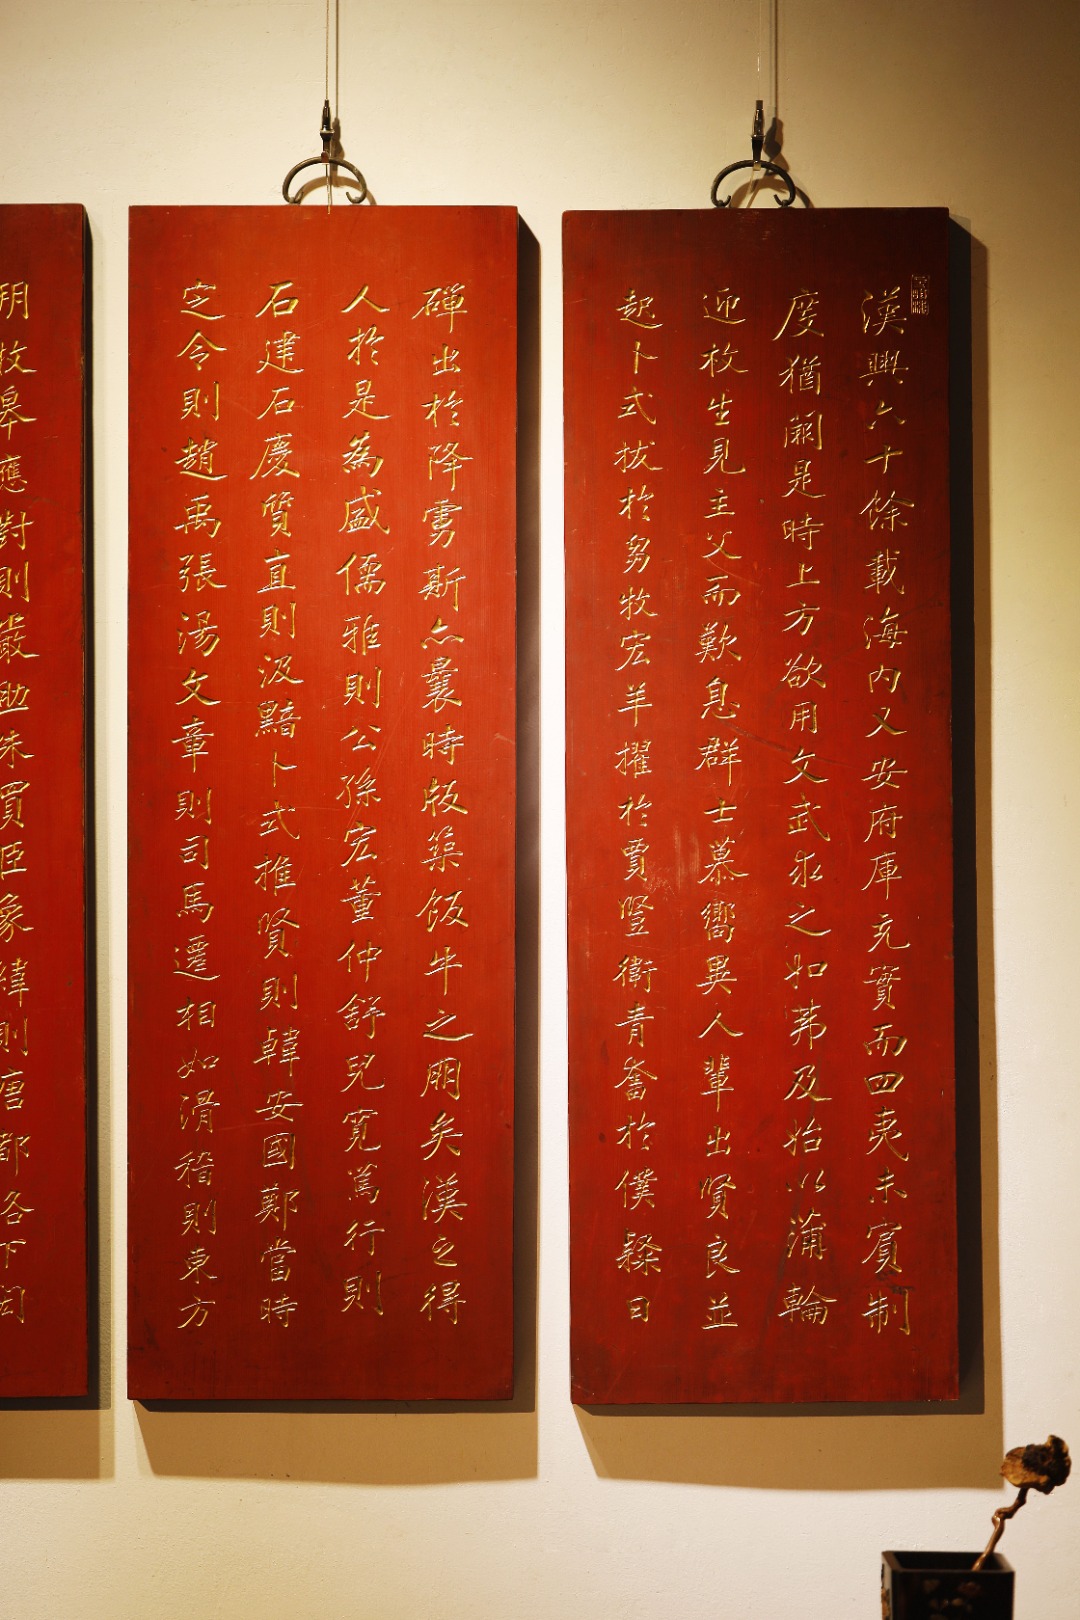 漢興六十餘載海内乂安府庫充實而四夷未賓制
度猶闕是時上方欲用文武求之如弗及始以蒲輪
迎枚生見主父而歎息群士慕嚮異人輩出賢良並
起卜式拔於芻牧宏羊擢於賈豎衛青奮於僕隸日
磾出於降虜斯亦曩時版築飯牛之朋矣漢之得
人於是為盛儒雅則公孫宏董仲舒兒寬篤行則
石建石慶質直則汲黯卜式推賢則韓安國鄭當時
定令則趙禹張湯文章則司馬遷相如滑稽則東方
朔枚皋應對則嚴助朱買臣象緯則唐都洛下閎